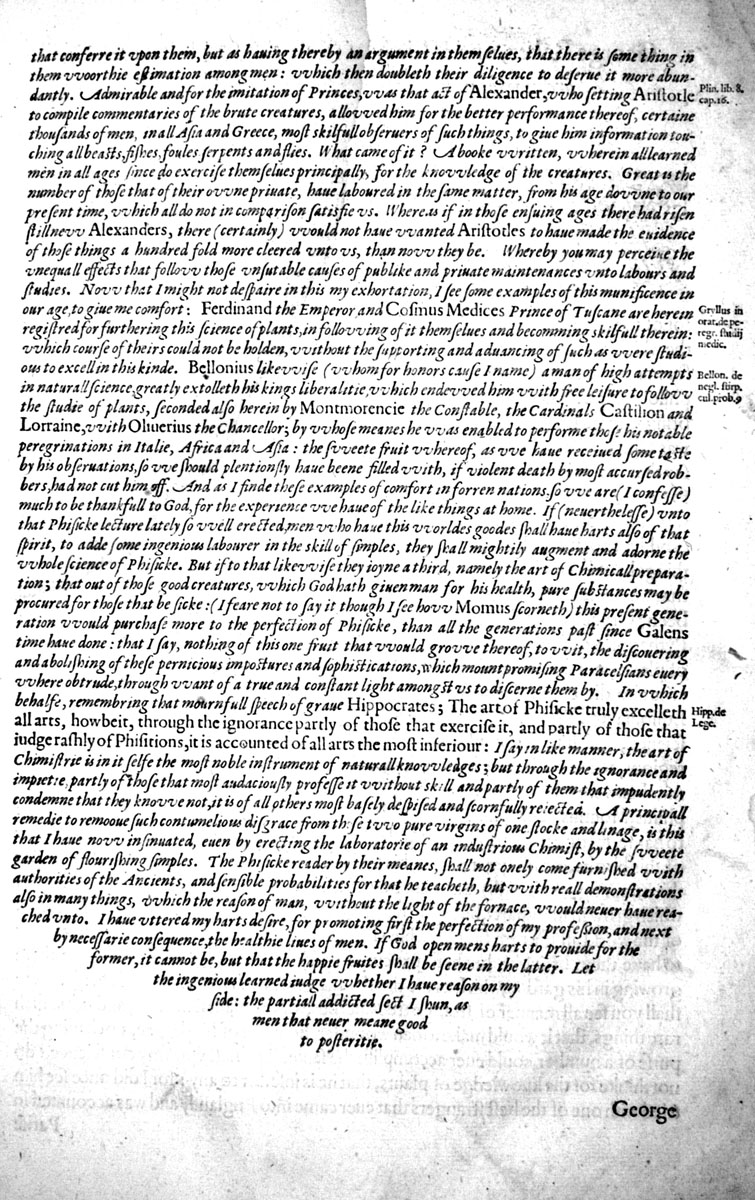 that conferre it vpon them, but as hauing thereby an argument in themſelues, that there is ſome thing in
them vvoorthie eſtimation among men: vvhich then doubleth their diligence to deſerue it more abun-
dantly. Admirable and for the imitation of Princes, vvas that act of Alexander, vvho ſetting Ariſtotle
Plin. lib. 8.
cap. 16.
to compile commentaries of the brute creatures, allovved him for the better performance thereof, certaine
thouſands of men, in all Aſia and Greece, moſt skilfull obſeruers of ſuch things, to giue him information tou-
ching all beaſts, fiſhes, foules ſerpents and flies. What came of it? A booke vvritten, vvherein all learned
men in all ages ſince do exerciſe themſelues principally, for the knovvledge of the creatures. Great is the
number of thoſe that of their ovvne priuate, haue laboured in the ſame matter, from his age dovvne to our
preſent time, vvhich all do not in compariſon ſatisfie vs. Whereas if in thoſe enſuing ages there had riſen
ſtill nevv Alexanders, there (certainly) vvould not haue vvanted Ariſtotles to haue made the euidence
of thoſe things a hundred fold more cleered vnto vs, than novv they be. Whereby you may perceiue the
vnequall effects that follovv thoſe vnſutable cauſes of publike and priuate maintenances vnto labours and
ſtudies. Novv that I might not deſpaire in this my exhortation, I ſee ſome examples of this munificence in
our age, to giue me comfort: Ferdinand the Emperor and Coſimus Medices Prince of Tuſcane are herein
Gryllus in
orat. de pe-
regr. ſtudij
medic.
regiſtred for furthering this ſcience of plants, in follovving of it themſelues and becomming skilfull therein:
vvhich courſe of theirs could not be holden, vvithout the ſupporting and aduancing of ſuch as vvere ſtudi-
ous to excell in this kinde. Bellonius likevviſe (vvhom for honors cauſe I name) a man of high attempts
Bellon. de
negl. ſtirp.
cul. prob. 9
in naturall ſcience, greatly extolleth his kings liberalitie, vvhich endevved him vvith free leiſure to follovv
the ſtudie of plants, ſeconded alſo herein by Montmorencie the Conſtable, the Cardinals Caſtilion and
Lorraine, vvith Oliuerius the Chancellor; by vvhoſe meanes he vvas enabled to performe theſe his notable
peregrinations in Italie, Africa and Aſia: the ſvveete fruit vvhereof, as vve haue receiued ſome taſte
by his obſeruations, ſo vve ſhould plentiouſly haue beene filled vvith, if violent death by moſt accurſed rob-
bers, had not cut him off. And as I finde theſe examples of comfort in forren nations, ſo vve are (I confeſſe)
much to be thankfull to God, for the experience vve haue of the like things at home. If (neuertheleſſe) vnto
that Phiſicke lecture lately ſo vvell erected, men vvho haue this vvorldes goodes ſhall haue harts alſo of that
ſpirit, to adde ſome ingenious labourer in the skill of ſimples, they ſhall mightily augment and adorne the
vvhole ſcience of Phiſicke. But if to that likevviſe they ioyne a third, namely the art of Chimicall prepara-
tion; that out of thoſe good creatures, vvhich God hath giuen man for his health, pure ſubſtances may be
procured for thoſe that be ſicke: (I feare not to ſay it though I ſee hovv Momus ſcorneth) this preſent gene-
ration vvould purchaſe more to the perfection of Phiſicke, than all the generations paſt ſince Galens
time haue done: that I ſay, nothing of this one fruit that vvould grovve thereof, to vvit, the diſcouering
and aboliſhing of theſe pernicious impoſtures and ſophiſtications, which mount promiſing Paracelſians euery
vvhere obtrude, through vvant of a true and conſtant light amongſt vs to diſcerne them by. In vvhich
behalfe, remembring that mournfull ſpeech of graue Hippocrates; The art of Phiſicke truly excelleth
Hipp. de
Lege.
all arts, howbeit, through the ignorance partly of thoſe that exerciſe it, and partly of thoſe that
iudge raſhly of Phiſitions, it is accounted of all arts the moſt inferiour: I ſay in like manner, the art of
Chimiſtrie is in it ſelfe the moſt noble inſtrument of naturall knovvledges; but through the ignorance and
impietie, partly of thoſe that moſt audaciouſly profeſſe it vvithout skill and partly of them that impudently
condemne that they knovve not, it is of all others moſt baſely deſpiſed and ſcornfully reiected. A principall
remedie to remooue ſuch contumelious diſgrace from theſe tvvo pure virgins of one ſtocke and linage, is this
that I haue novv inſinuated, euen by erecting the laboratorie of an induſtrious Chimiſt, by the ſvveete
garden of flouriſhing ſimples. The Phiſicke reader by their meanes, ſhall not onely come furniſhed vvith
authorities of the Ancients, and ſenſible probabilities for that he teacheth, but vvith reall demonſtrations
alſo in many things, vvhich the reaſon of man, vvithout the light of the fornace, vvould neuer haue rea-
ched vnto. I haue vttered my harts deſire, for promoting firſt the perfection of my profeſſion, and next
by neceſſarie conſequence, the healthie liues of men. If God open mens harts to prouide for the
former, it cannot be, but that the happie fruites ſhall be ſeene in the latter. Let
the ingenious learned iudge vvhether I haue reaſon on my
ſide: the partiall addicted ſect I ſhun, as
men that neuer meane good
to poſteritie.
George